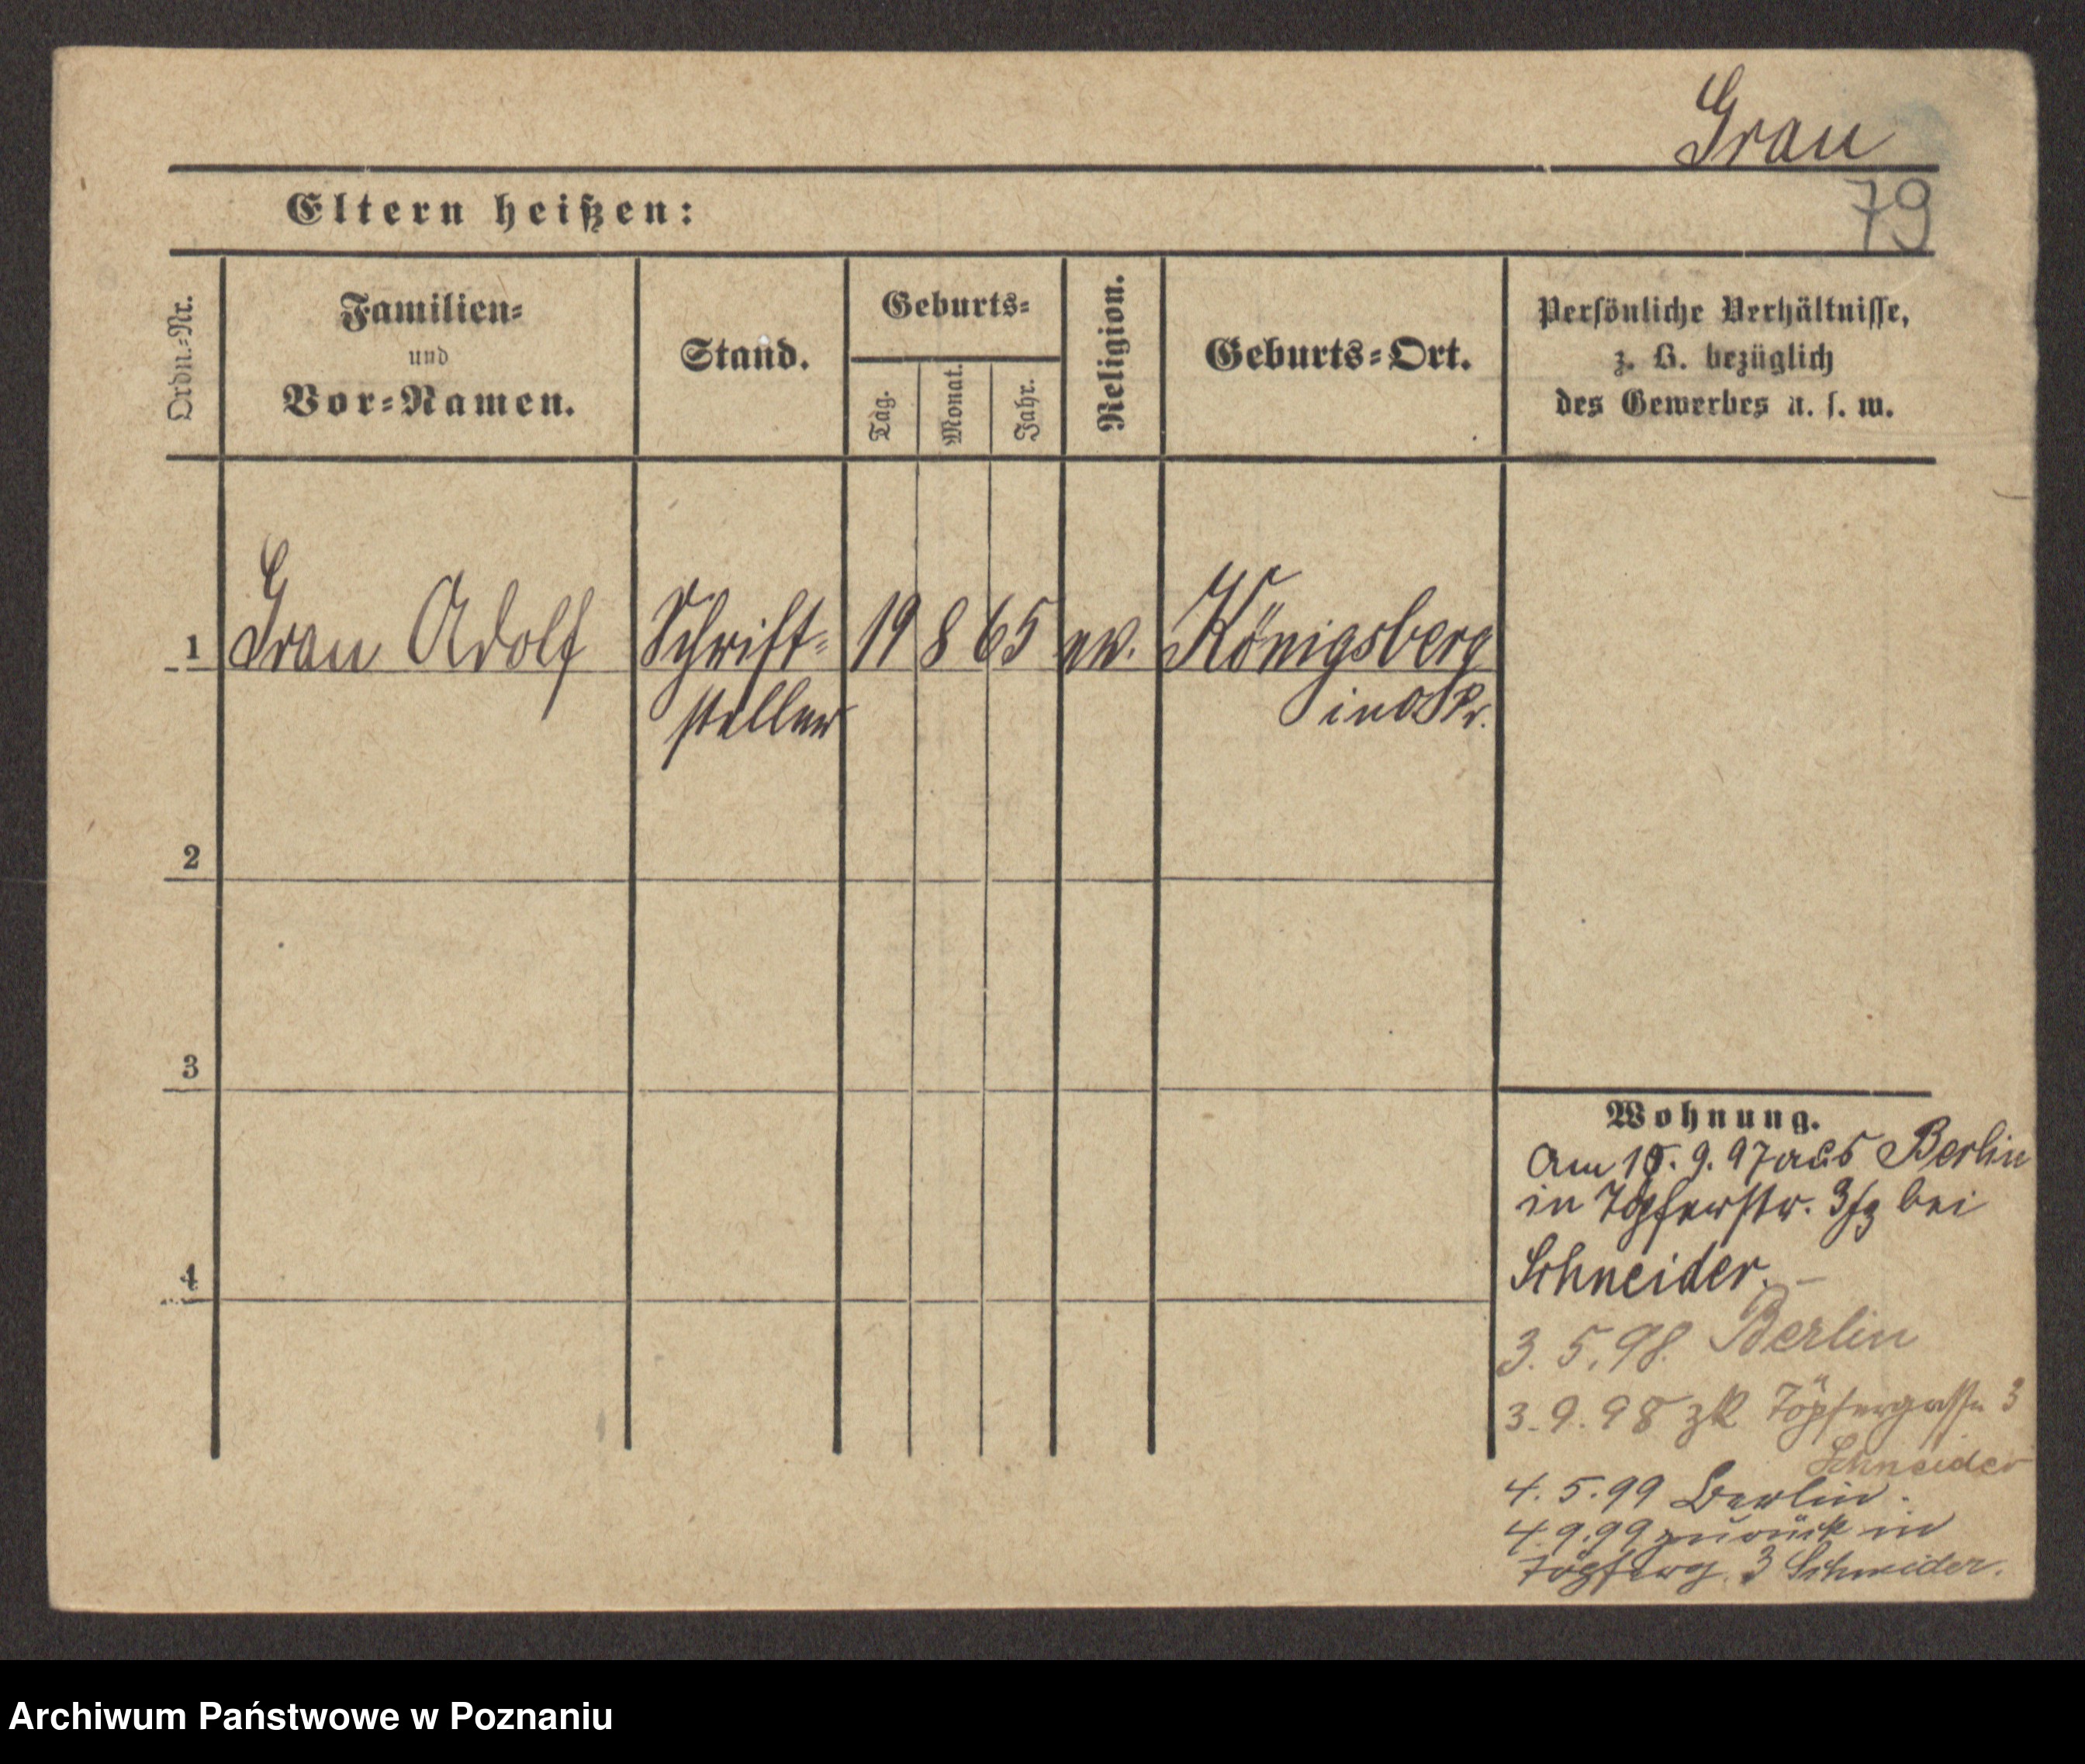 Grau
Eltern heißen:
79
Ordn.-Nr.
Familien-
und
Vor-Namen.
Stand.
Geburts-
Tag.
Monat.
Jahr.
Religion.
Geburts-Ort.
Persönliche Verhältnisse,
z. B. bezüglich
des Gewerbes u. s. w.
1 Grau Adolf Schrift- 19 8 65 ev. Königsberg
steller in O/Pr.
2
3
4
Wohnung.
Am 15. 9. 97 aus Berlin
in Töpferstr. bei
Schneider.
3. 5. 98. Berlin
3. 9. 98 zk Töpfergasse 3
Schneider
4. 5. 99 Berlin.
4 9. 99 zurück in
Töpferg. 3 Schneider.
Archiwum Państwowe w Poznaniu